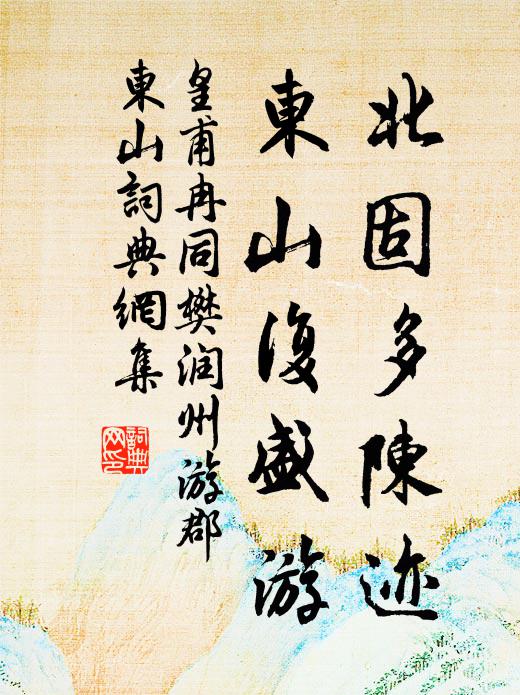 北固多陳迹
東山復盛游
皇甫冉同樊润州游郡
東山詞典網集
詞典网印